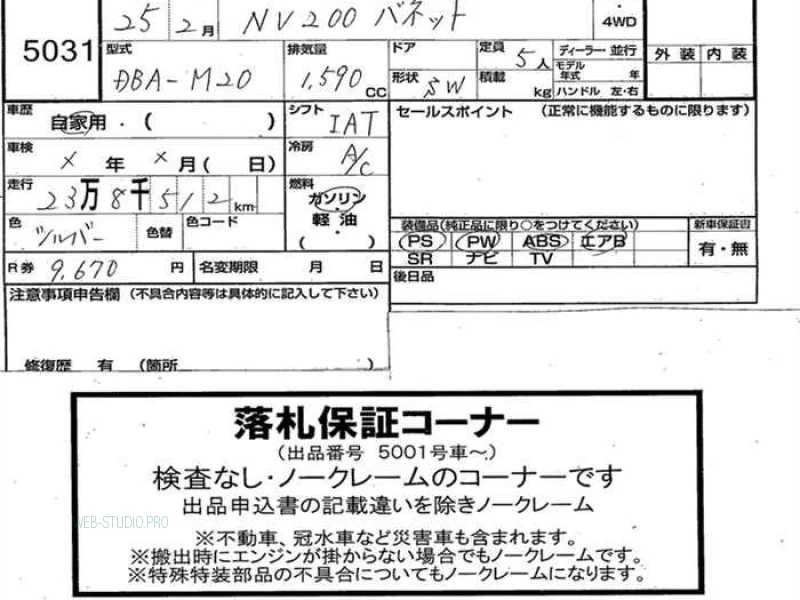 25 2月 NV200 バネット
4WD
5031
型式 DBA-M20
排気量 1,590 CC
ドア
形状 SW
定員 5人
積載 kg
ディーラー・並行
モデル年式 年
ハンドル 左・右
外装 内装
車歴 自家用・( )
シフト IAT
セールスポイント (正常に機能するものに限ります)
車検 ×年 ×月( 日)
冷房 A/C
走行 23万8千512km
燃料 ガソリン・軽油・( )
色 シルバー 色替 色コード
装備品(純正品に限り○をつけてください)
新車保証書
PS PW ABS エアB
SR ナビ TV
有・無
R券 9,670円 名変期限 月 日
後日品
注意事項申告欄 (不具合内容等は具体的に記入して下さい)
修復歴 有 (箇所 )
落札保証コーナー
(出品番号 5001号車~)
検査なし・ノークレームのコーナーです
出品申込書の記載違いを除きノークレーム
WEB-STUDIO.PRO
※不動車、冠水車など災害車も含まれます。
※搬出時にエンジンが掛からない場合でもノークレームです。
※特殊特装部品の不具合についてもノークレームになります。